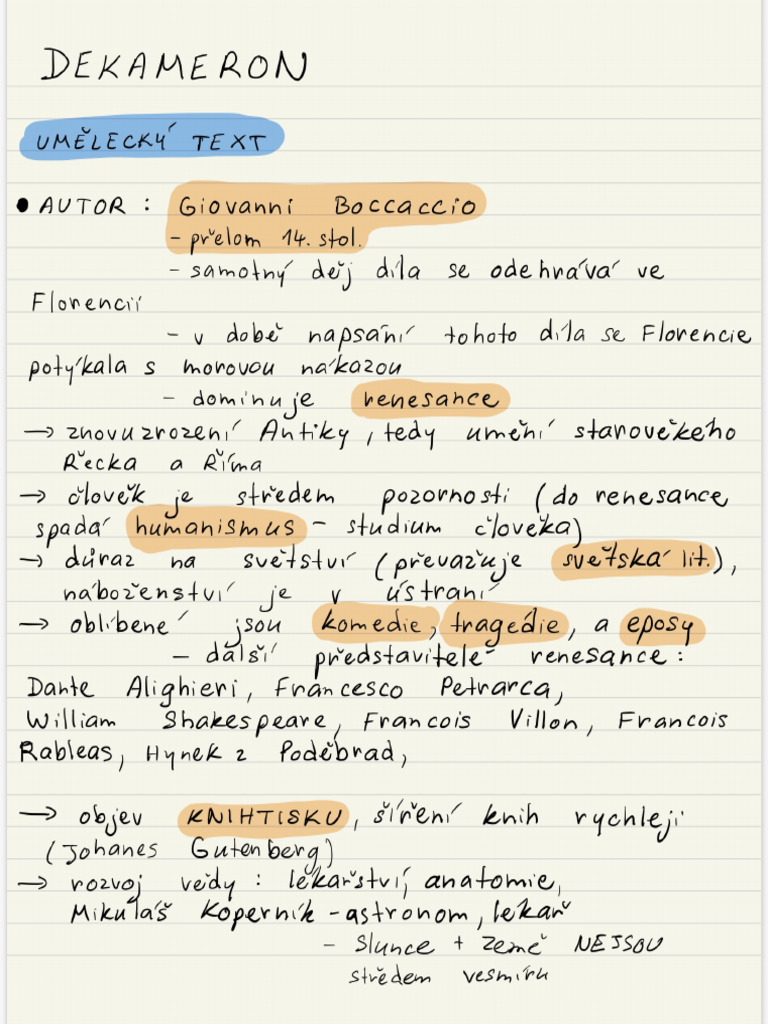 DEKAMERON
UMĚLECKÝ TEXT
• AUTOR : Giovanni Boccaccio
- přelom 14. stol.
- samotný děj díla se odehrává ve
Florencii
- v době napsání tohoto díla se Florencie
potýkala s morovou nákazou
- dominuje renesance
→ znovuzrození Antiky, tedy umění starověkého
Řecka a Říma
→ člověk je středem pozornosti (do renesance
spadá humanismus - studium člověka)
→ důraz na světství (převažuje světská lit.),
náboženství je v ústraní
→ oblíbené jsou komedie, tragédie, a eposy
- další představitelé renesance :
Dante Alighieri, Francesco Petrarca,
William Shakespeare, Francois Villon, Francois
Rableas, Hynek z Poděbrad,
→ objev KNIHTISKU, šíření knih rychleji
(Johanes Gutenberg)
→ rozvoj vědy : lékařství, anatomie,
Mikuláš Koperník - astronom, lékař
- Slunce + Země NEJSOU
středem vesmíru